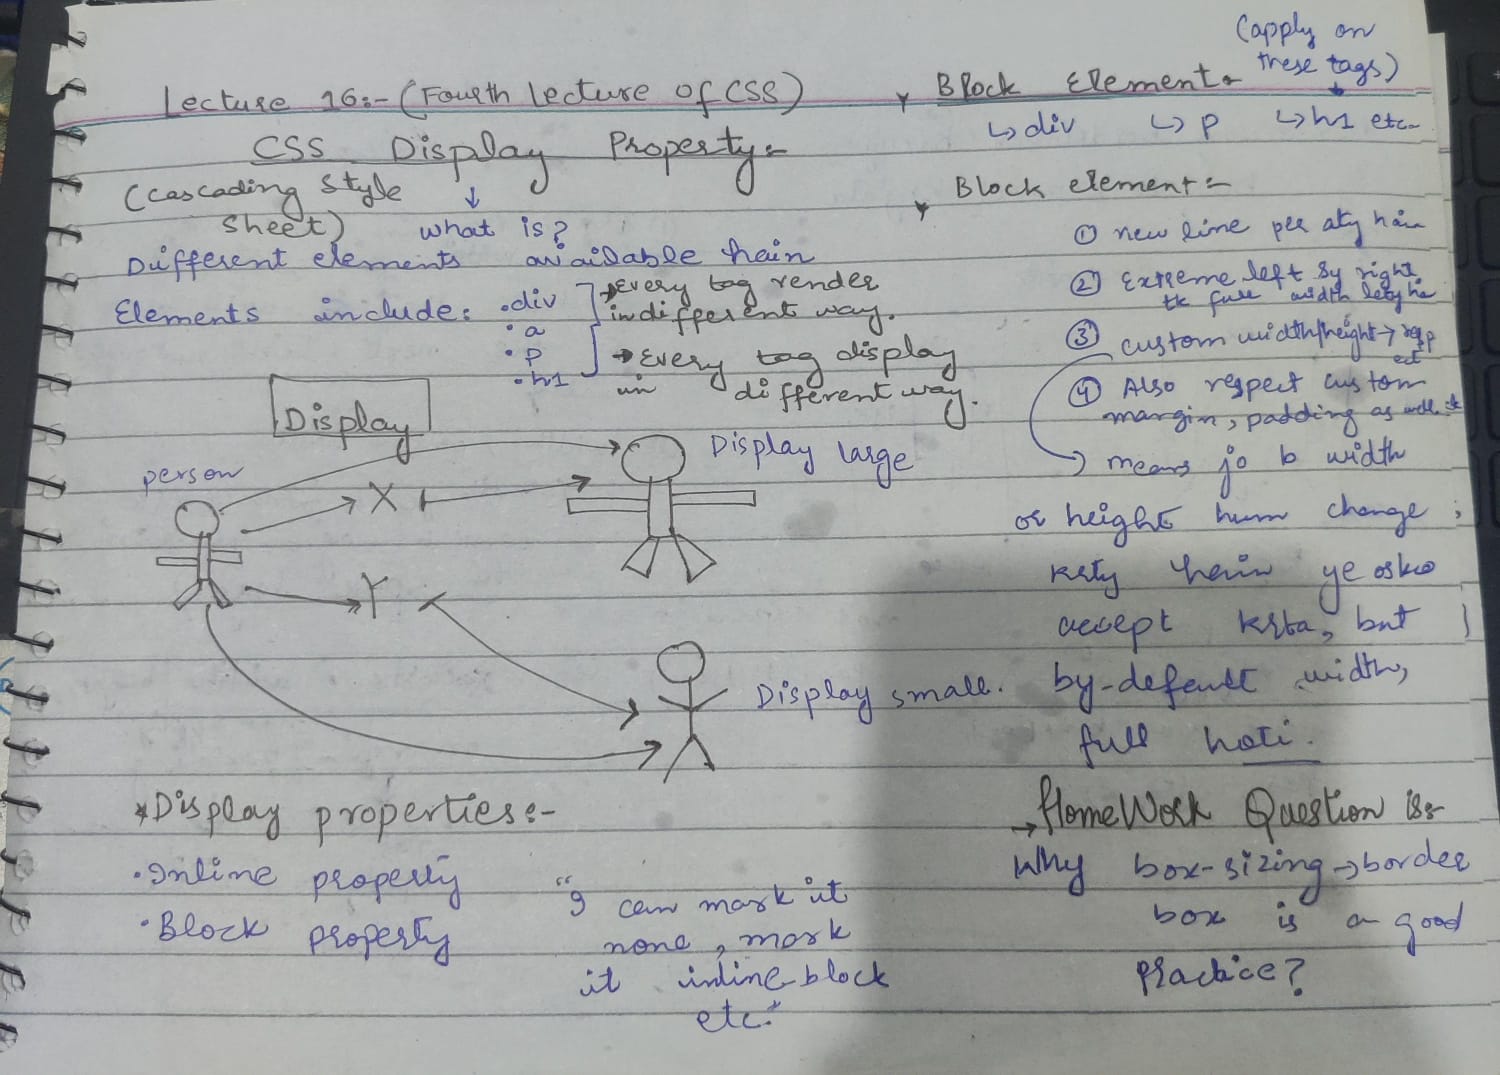 Lecture 16:- (Fourth Lecture of CSS)
CSS Display Property:-
(Cascading Style
Sheet)
↓
what is?
Different elements available hain
Elements include:
• div
• a
• p
• h1
→ Every tag render
in different way.
→ Every tag display
in different way.
Display
person
X
Y
Display large
Display small.
*Display properties:-
• Inline property
• Block property
"I can mark it
none, mark
it inline-block
etc."
Block Element:-
(apply on
these tags)
↳ div ↳ p ↳ h1 etc-
Block element:-
① new line per aty hain
② Extreme left sy right
tk full width lety ha
③ custom width/height → resp
ect
④ Also respect custom
margin, padding as well
→ means jo b width
or height hum change
krty hain ye osko
accept krta, but
by-default width,
full hoti.
→ HomeWork Question is:-
Why box-sizing → border
box is a good
practice?